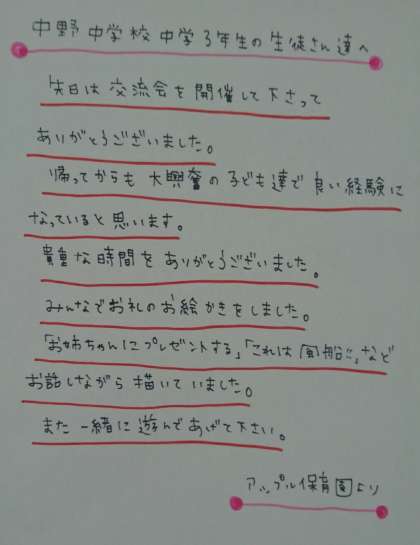 中野中学校中学3年生の生徒さん達へ
先日は交流会を開催して下さって
ありがとうございました。
帰ってからも大興奮の子ども達で良い経験に
なっていると思います。
貴重な時間をありがとうございました。
みんなでお礼のお絵かきをしました。
「お姉ちゃんにプレゼントする」「これは風船!!」など
お話しながら描いていました。
また一緒に遊んであげて下さい。
アップル保育園より